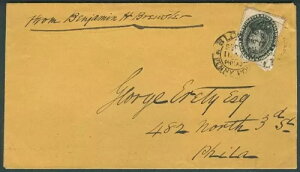 From Benjamin H Brewster
George Erety Esq
482 North 3d St
Phila